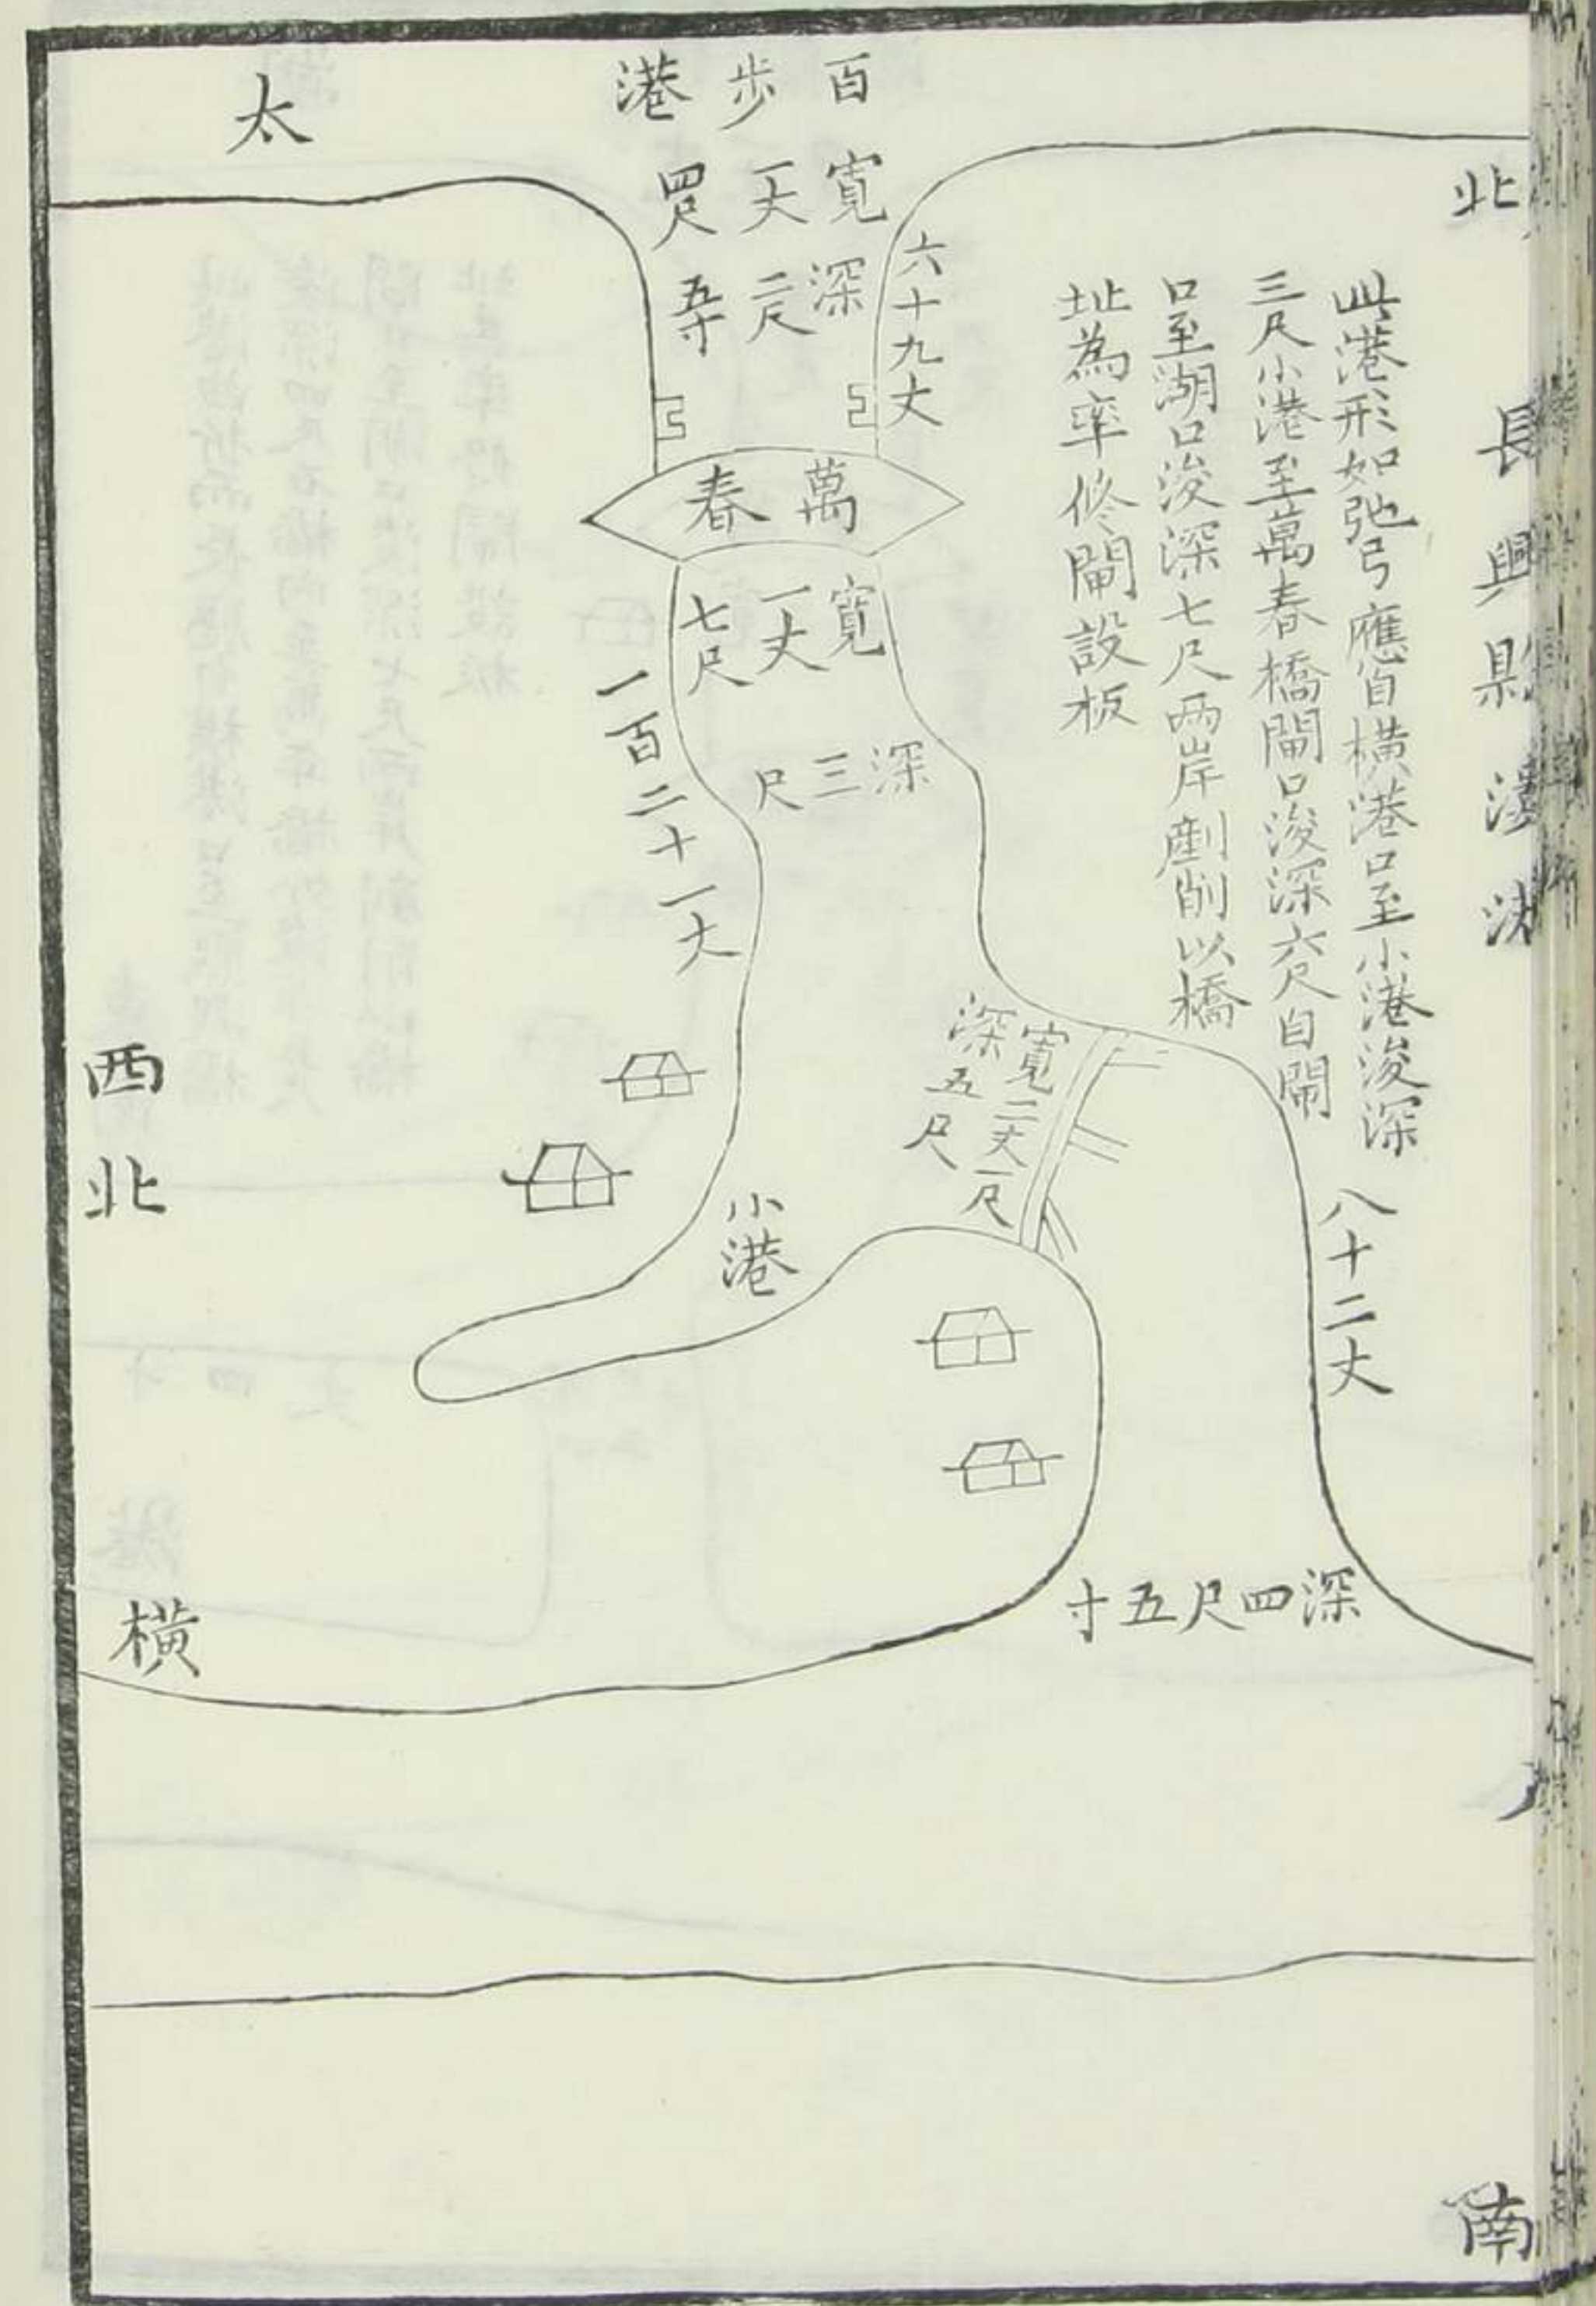 北
長興縣漊港
此港形如弛弓應自橫港口至小港浚深
三尺小港至萬春橋閘口浚深六尺自閘
口至湖口浚深七尺兩岸剷削以橋
址為率修閘設板
百步港
寬一丈四尺
深二尺五寸
六十九丈
太
萬春
寬一丈七尺
深三尺
一百二十一丈
寬二丈一尺
深五尺
小港
八十二丈
西北
深四尺五寸
橫
南